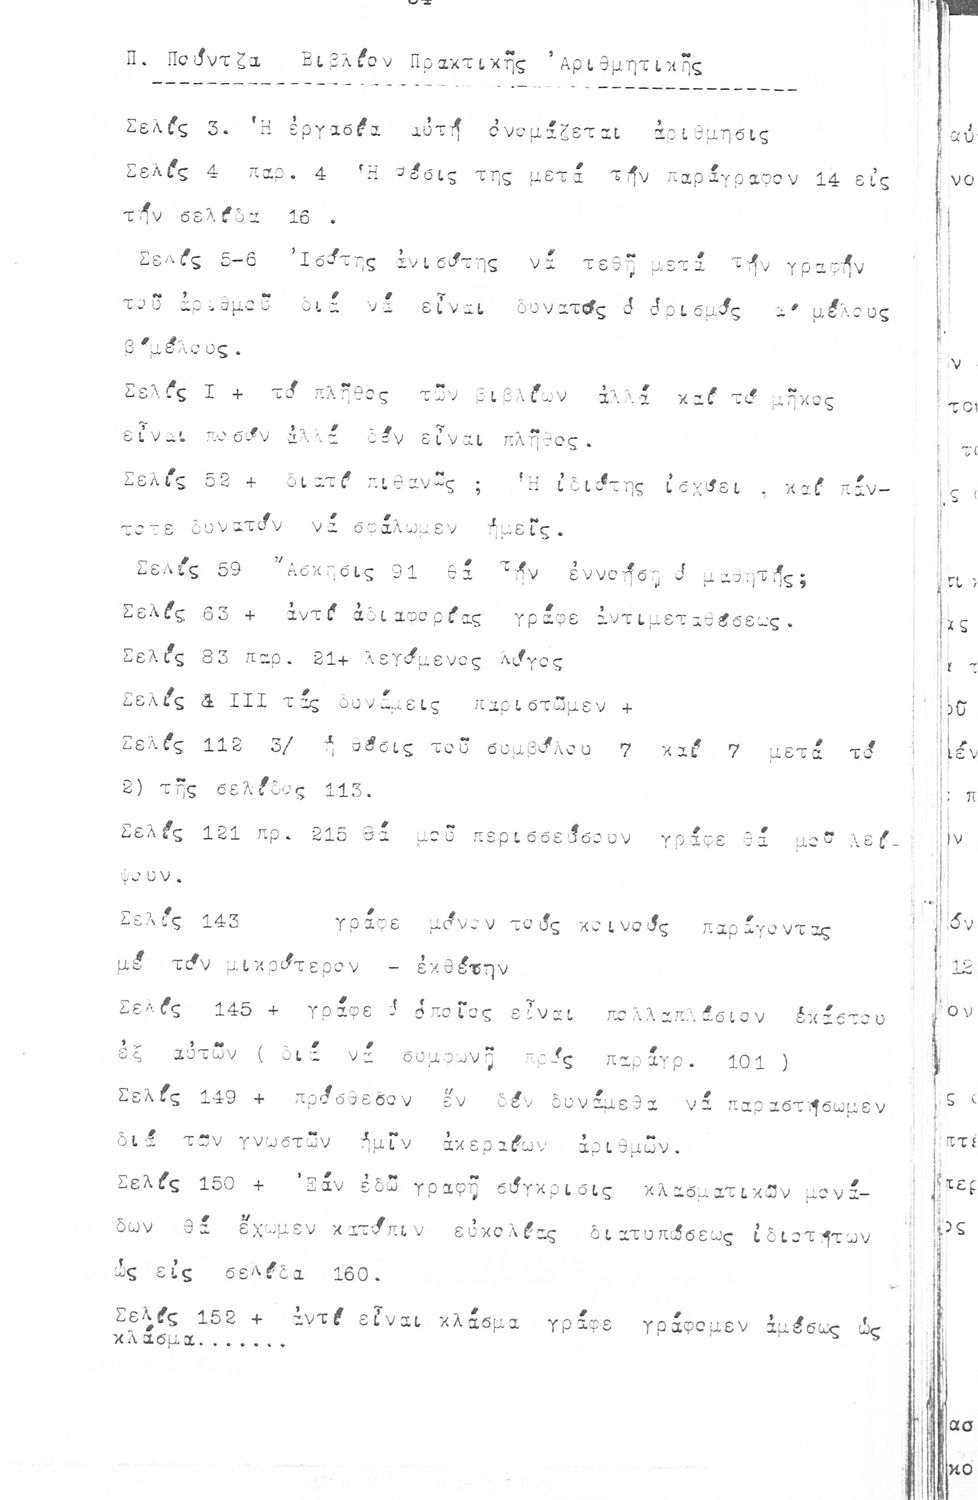 Π. Πούντζα Βιβλίον Πρακτικῆς Ἀριθμητικῆς
Σελίς 3. Ἡ ἐργασία αὐτή ὀνομάζεται ἀρίθμησις
Σελίς 4 παρ. 4 Ἡ θέσις της μετά τήν παράγραφον 14 εἰς
τήν σελίδα 16 .
Σελίς 5-6 Ἰσότης ἀνισότης νά τεθῇ μετά τήν γραφήν
τοῦ ἀριθμοῦ διά νά εἶναι δυνατός ὁ ὁρισμός α' μέλους
β'μέλους.
Σελίς Ι + τό πλῆθος τῶν βιβλίων ἀλλά καί τό μῆκος
εἶναι ποσόν ἀλλά δέν εἶναι πλῆθος.
Σελίς 52 + διατί πιθανῶς ; Ἡ ἰδιότης ἰσχύει , καί πάν-
τοτε δυνατόν νά σφάλωμεν ἡμεῖς.
Σελίς 59 Ἄσκησις 91 θά τήν ἐννοήσῃ ὁ μαθητής;
Σελίς 63 + ἀντί ἀδιαφορίας γράφε ἀντιμεταθέσεως.
Σελίς 83 παρ. 21+ λεγόμενος λόγος
Σελίς & ΙΙΙ τάς δυνάμεις παριστῶμεν +
Σελίς 112 3/ ἡ θέσις τοῦ συμβόλου 7 καί 7 μετά τό
2) τῆς σελίδος 113.
Σελίς 121 πρ. 215 θά μοῦ περισσεύσουν γράφε θά μοῦ λεί-
ψουν.
Σελίς 143 γράφε μόνον τούς κοινούς παράγοντας
μέ τόν μικρότερον - ἐκθέτην
Σελίς 145 + γράφε ὁ ὁποῖος εἶναι πολλαπλάσιον ἑκάστου
ἐξ αὐτῶν ( διά νά συμφωνῇ πρός παράγρ. 101 )
Σελίς 149 + πρόσθεσον ἕν δέν δυνάμεθα νά παραστήσωμεν
διά τῶν γνωστῶν ἡμῖν ἀκεραίων ἀριθμῶν.
Σελίς 150 + Ἐάν ἐδῶ γραφῇ σύγκρισις κλασματικῶν μονά-
δων θά ἔχωμεν κατόπιν εὐκολίας διατυπώσεως ἰδιοτήτων
ὡς εἰς σελίδα 160.
Σελίς 152 + ἀντί εἶναι κλάσμα γράφε γράφομεν ἀμέσως ὡς
κλάσμα.......